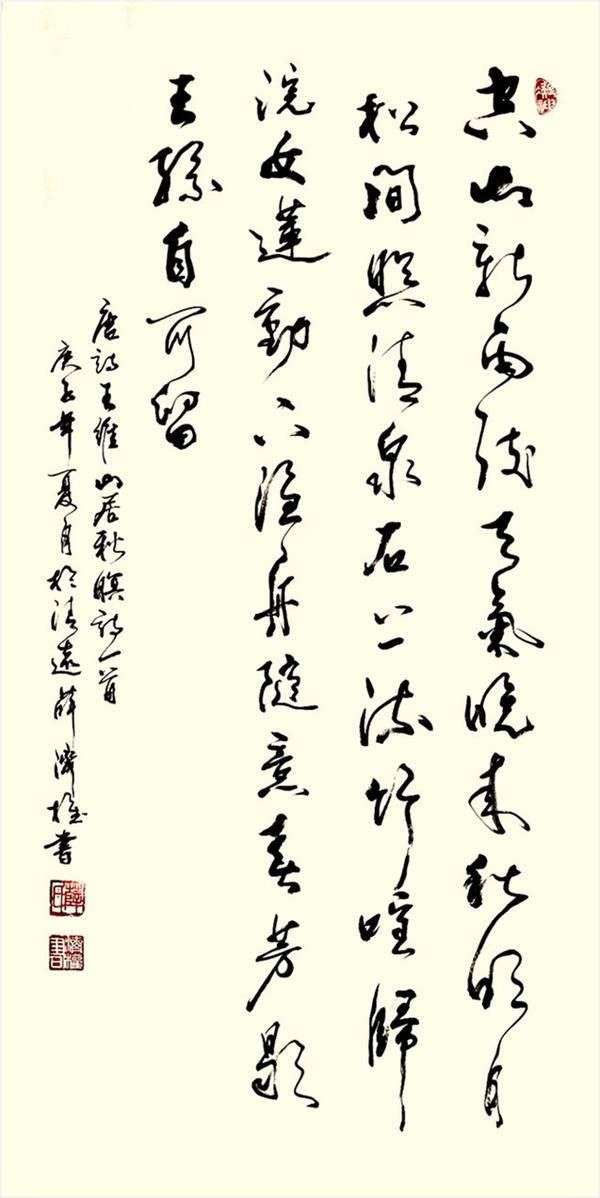 空山新雨後天氣晚来秋明月
松間照清泉石上流竹喧歸
浣女蓮動下漁舟隨意春芳歇
王孫自可留
唐詩王維山居秋暝詩一首
庚子年夏月於清遠薛濟書